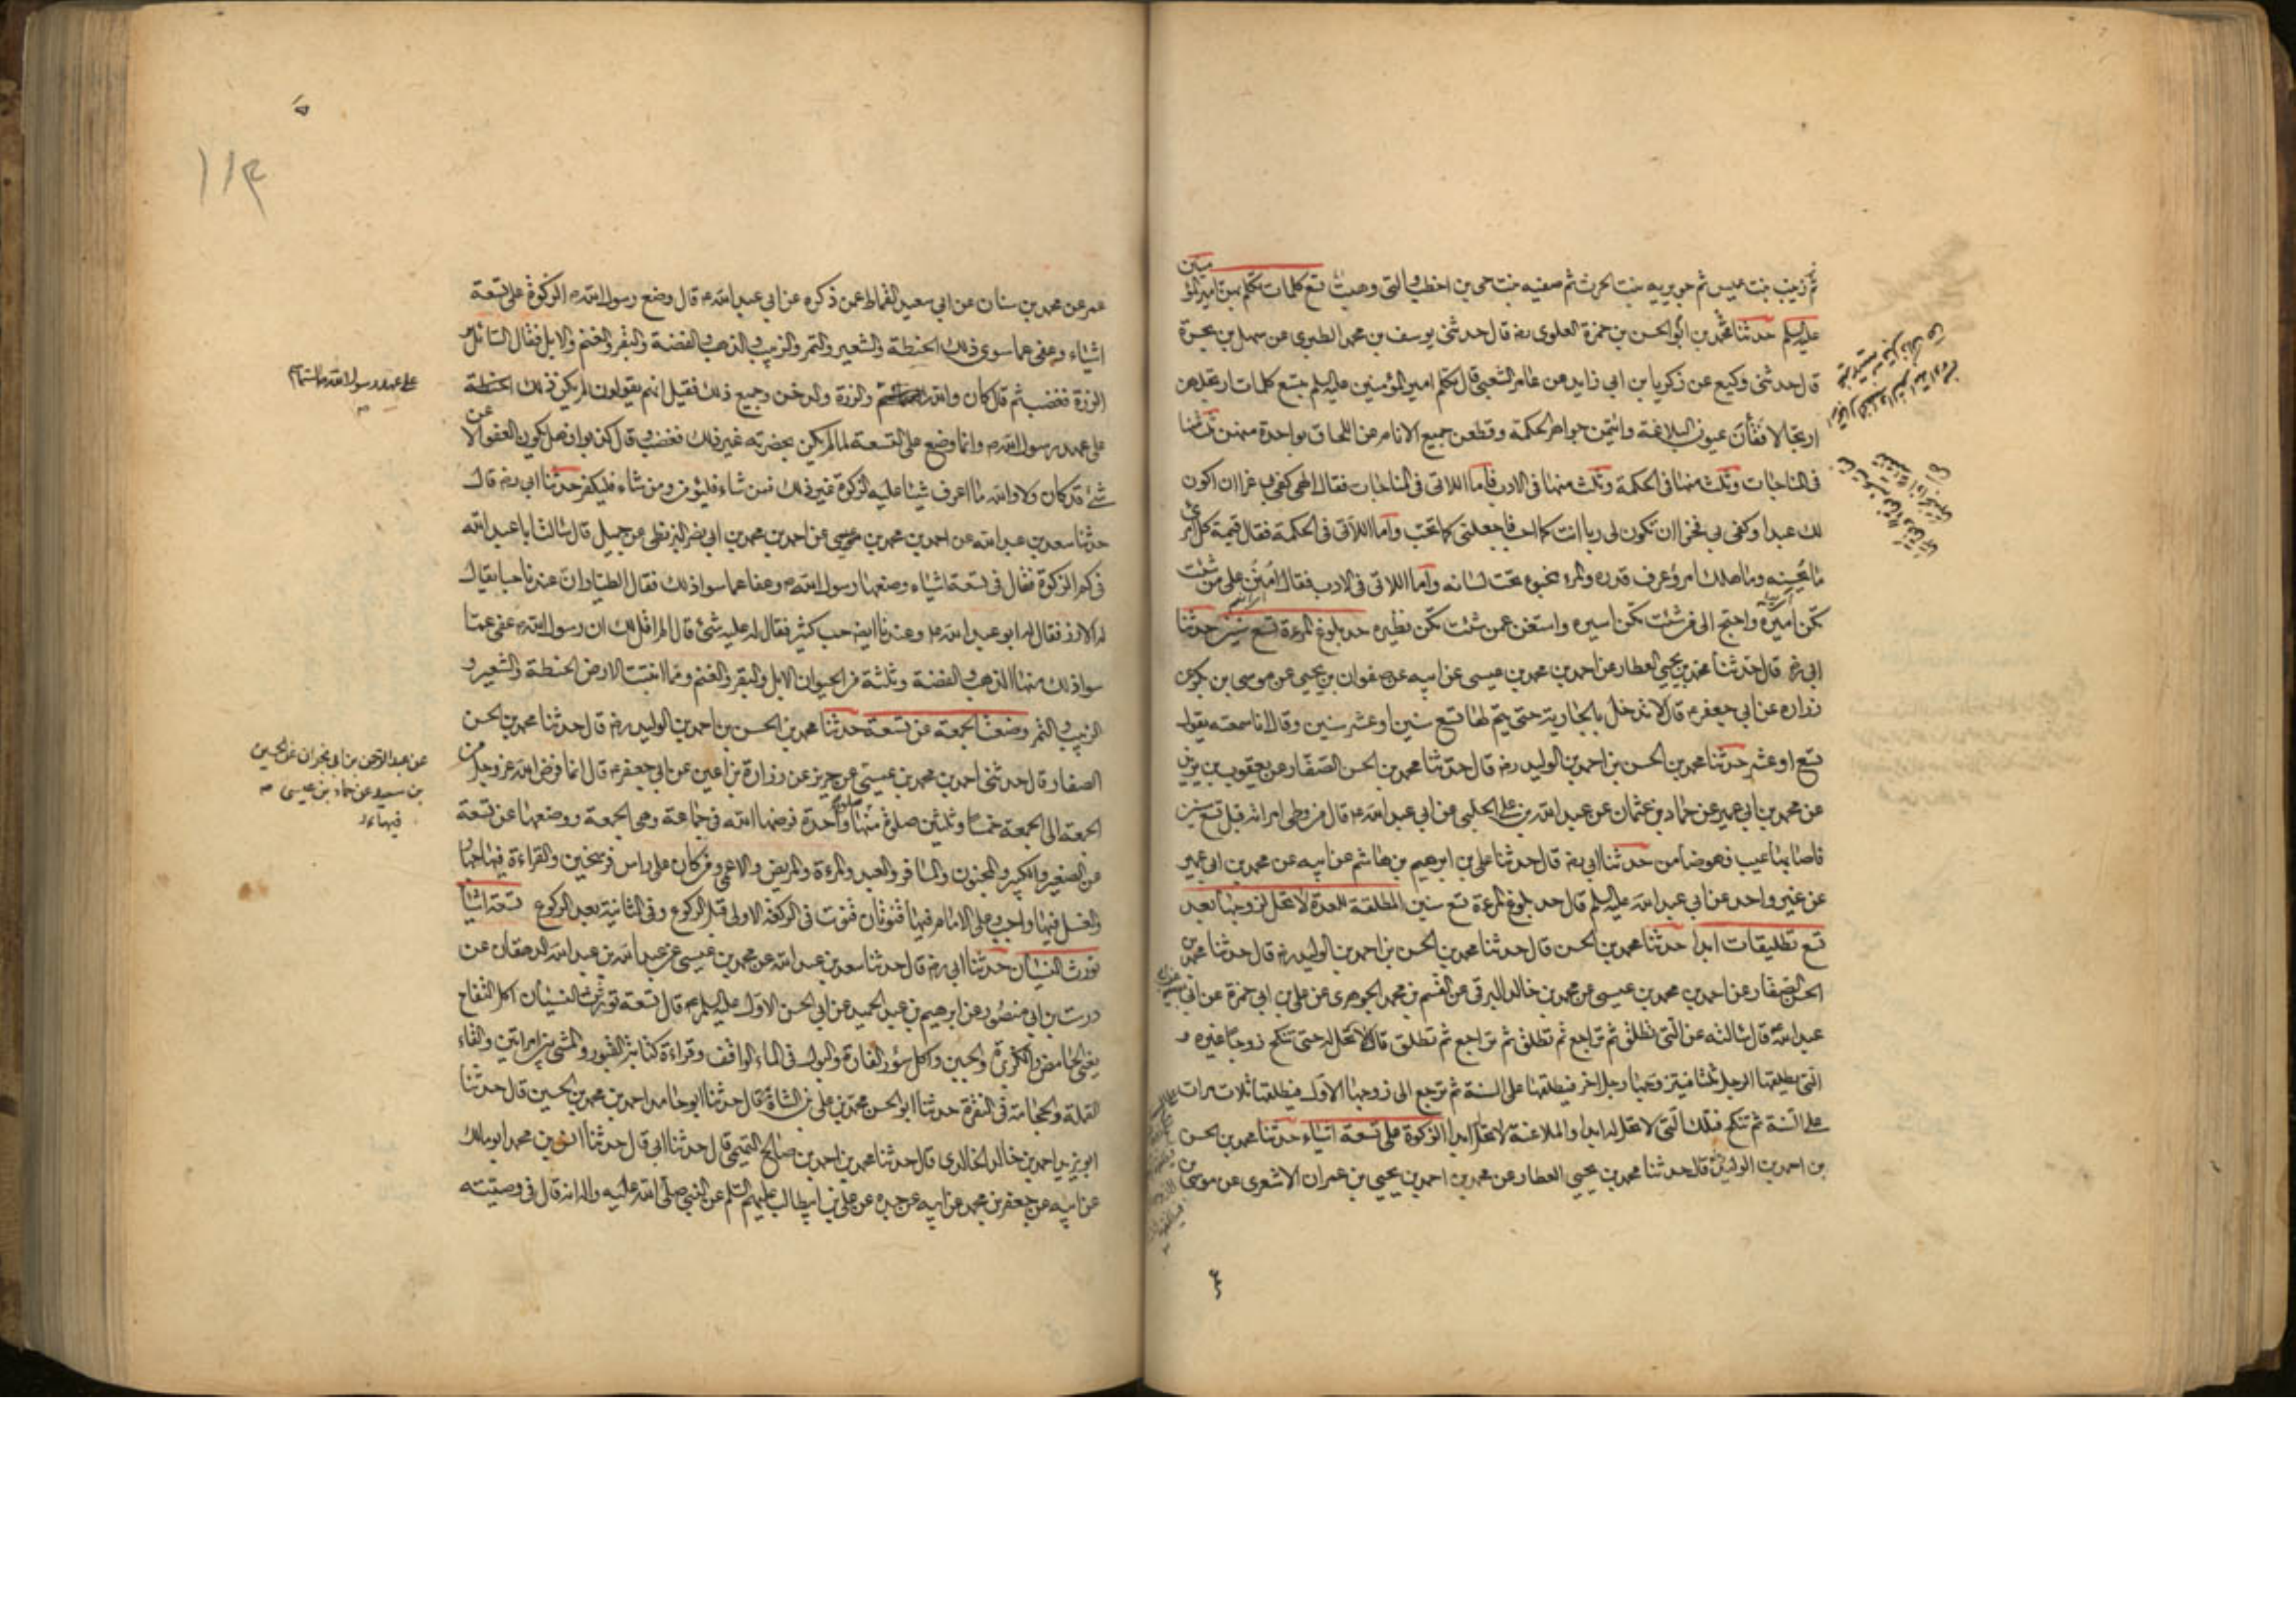 ثم زينب بنت عميس ثم جويريه بنت الحرث ثم صفيه بنت حى بن اخطب والتى وهبت تسع كلمات تكلم بهن امير المؤمنين
عليه السلم حدثنا محمد بن ابو الحسن بن حمزة العلوى رضه قال حدثنى يوسف بن محمد الطبرى عن سهل بن نجرة
قال حدثنى وكيع عن زكريا بن ابى زايد عن عامر الشعبى قال تكلم امير المؤمنين عليه السلم بتسع كلمات ارتجلهن
ارتجالا فقأن عيون البلاغة وايتمن جواهر الحكمة وقطعن جميع الانام عن اللحاق بواحدة منهن ثلث منها
فى المناجات وثلث منها فى الحكمة وثلث منها فى الادب فاما اللاتى فى المناجات فقال الهى كفى بى عزا ان اكون
لك عبدا وكفى بى فخرا ان تكون لى ربا انت كما احب فاجعلنى كما تحب واما اللاتى فى الحكمة فقال قيمة كل امرئ
ما يحسنه وما هلك امرؤ عرف قدره والمرء مخبوء تحت لسانه واما اللاتى فى الادب فقال امنن على من شئت
تكن اميره واحتج الى من شئت تكن اسيره واستغن عمن شئت تكن نظيره حد بلوغ المرءة تسع سنين حدثنا
ابى رضه قال حدثنا محمد بن يحيى العطار عن احمد بن محمد بن عيسى عن ابيه عن صفوان بن يحيى عن موسى بن بكر عن
زراره عن ابى جعفر ع قال لا تدخل بالجارية حتى يتم لها تسع سنين او عشر سنين وقال انا سمعته يقول
تسع او عشر حدثنا محمد بن الحسن بن احمد بن الوليد رضه قال حدثنا محمد بن الحسن الصفار عن يعقوب بن يزيد
عن محمد بن ابى عمير عن حماد بن عثمان عن عبيد الله بن على الحلبى عن ابى عبد الله ع قال من وطى امراته قبل تسع سنين
فاصابها عيب فهو ضامن حدثنا ابى رضه قال حدثنا على بن ابرهيم بن هاشم عن ابيه عن محمد بن ابى عمير
عن غير واحد عن ابى عبد الله عليه السلم قال حد بلوغ المرءة تسع سنين المطلقة للعدة لا تحل لزوجها بعد
تسع تطليقات ابدا حدثنا محمد بن الحسن قال حدثنا محمد بن الحسن بن احمد بن الوليد رضه قال حدثنا محمد بن
الحسن الصفار عن احمد بن محمد بن عيسى عن محمد بن خالد البرقى عن القسم بن محمد الجوهرى عن على بن ابى حمزة عن ابى
عبد الله قال سالته عن التى تطلق ثم تراجع ثم تطلق ثم تراجع ثم تطلق قال لا تحل له حتى تنكح زوجا غيره و
التى يطلقها الرجل ثلثا فيتزوجها رجل اخر فيطلقها على السنة ثم ترجع الى زوجها الاول فيطلقها ثلاث مرات
على السنة ثم تنكح فتلك التى لا تحل له ابدا والملاعنة لا تحل ابدا الزكوة على تسعة اشياء حدثنا محمد بن الحسن
بن احمد بن الوليد قال حدثنا محمد بن يحيى العطار عن محمد بن احمد بن يحيى بن عمران الاشعرى عن موسى بن
٤
۵
۱۱۴
عمر عن محمد بن سنان عن ابى سعيد القماط عمن ذكره عن ابى عبد الله ع قال وضع رسول الله ص الزكوة على تسعة
اشياء وعفى عما سوى ذلك الحنطة والشعير والتمر والزبيب والذهب والفضة والبقر والغنم والابل فقال السائل و
الذرة فغضب ثم قال كان والله السماسم والذرة والدخن وجميع ذلك فقيل انهم يقولون لم يكن ذلك
على عهد رسول الله ص وانما وضع على التسعة لما لم يكن بحضرته غير ذلك فغضب وقال كذبوا فهل يكون العفو الا عن
شئ قد كان ولا والله ما اعرف شيئا عليه الزكوة غير ذلك فمن شاء فليؤمن ومن شاء فليكفر حدثنا ابى رضه قال
حدثنا سعد بن عبد الله عن احمد بن محمد بن عيسى عن احمد بن محمد بن ابى نصر البزنطى عن جميل قال سالت ابا عبد الله
فى كم الزكوة فقال فى تسعة اشياء وضعها رسول الله ص وعفا عما سوا ذلك فقال الطيار ان عندنا حبا يقال
له الارز فقال له ابو عبد الله ع وعندنا ايضا حب كثير فقال له عليه شئ قال الم اقل لك ان رسول الله ص عفى عما
سوا ذلك منها الذهب والفضة وثلثة من الحيوان الابل والبقر والغنم ومما انبتت الارض الحنطة والشعير و
الزبيب والتمر وضعت الجمعة عن تسعة حدثنا محمد بن الحسن بن احمد بن الوليد رضه قال حدثنا محمد بن الحسن
الصفار وقال حدثنى احمد بن محمد بن عيسى عن حريز عن زرارة بن اعين عن ابى جعفر ع قال انما فرض الله عز وجل من
الجمعة الى الجمعة خمسا وثلثين صلوة منها صلوة واحدة فرضها الله فى جماعة وهى الجمعة ووضعها عن تسعة
عن الصغير والكبير والمجنون والمسافر والعبد والمرءة والمريض والاعمى ومن كان على راس فرسخين والقراءة فيها جهار
والغسل فيها واجب وعلى الامام فيها قنوتان قنوت فى الركعة الاولى قبل الركوع وفى الثانية بعد الركوع تسعة اشيا
تورث النسيان حدثنا ابى رضه قال حدثنا سعد بن عبد الله عن محمد بن عيسى عن عبيد الله بن عبد الله الدهقان عن
درست بن ابى منصور عن ابرهيم بن عبد الحميد عن ابى الحسن الاول عليه السلم قال تسعة تورثن النسيان اكل التفاح
يعنى الحامض والكزبرة والجبن واكل سؤر الفارة والبول فى الماء الواقف وقراءة كتابة القبور والمشى بين امراتين والقاء
القملة والحجامة فى النقرة حدثنا ابو الحسن محمد بن على بن الشاة قال حدثنا ابو حامد احمد بن محمد بن الحسين قال حدثنا
ابو يزيد احمد بن خالد الخالدى قال حدثنا محمد بن احمد بن صالح التميمى قال حدثنا ابى قال حدثنا انس بن محمد ابو مالك
عن ابيه عن جعفر بن محمد عن ابيه عن جده عن على بن ابيطالب عليهم السلم عن النبى صلى الله عليه واله انه قال فى وصيته
على عهد رسول الله
عن عبد الرحمن بن ابى نجران عن الحسين
بن سعيد عن حماد بن عيسى
فيها